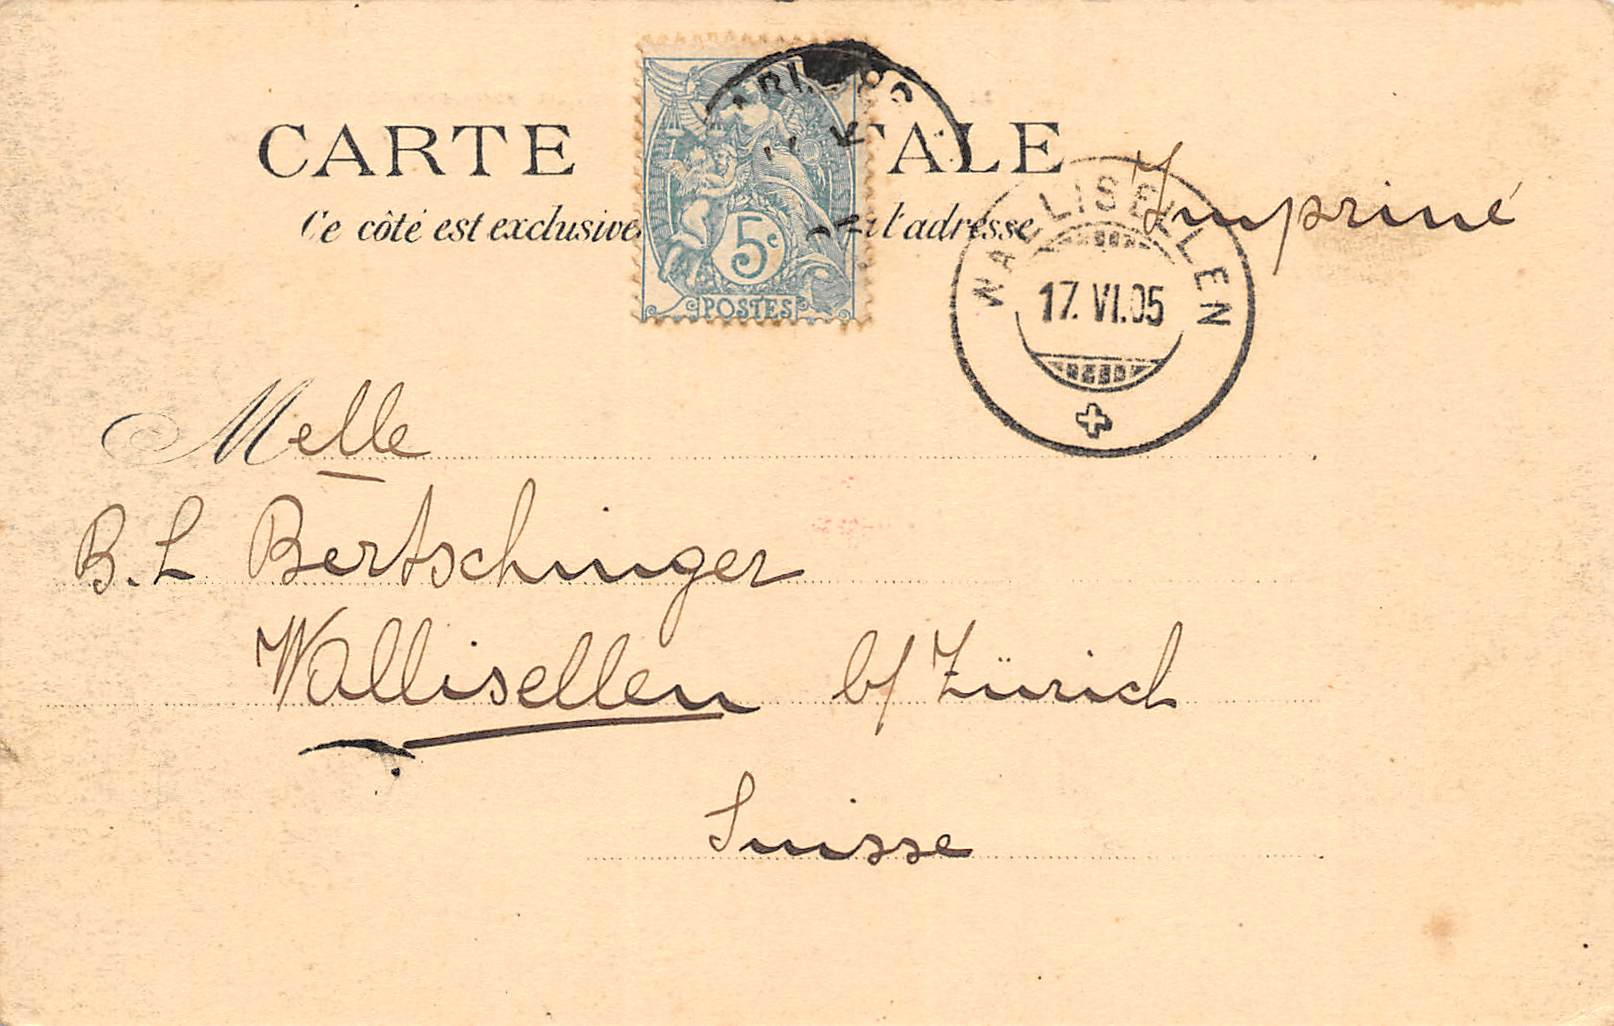 CARTE TALE
Ce côté est exclusive l'adresse
5c
POSTES
Imprimé
WALLISELLEN
17. VI. 05
Melle
B. L Bertschinger
Wallisellen b/ Zürich
Suisse